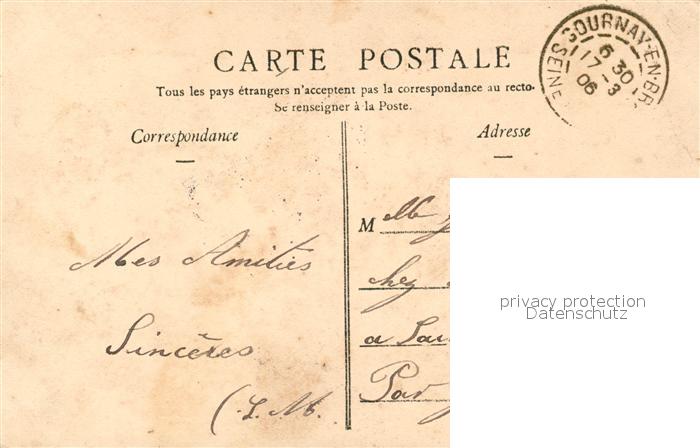 CARTE POSTALE
Tous les pays étrangers n'acceptent pas la correspondance au recto.
Se renseigner à la Poste.
Correspondance
Adresse
GOURNAY-EN-BR
SEINE
6 30
17-3
06
Mes Amitiés
Sincères
(L. M.
M elle
chez
a
Par
privacy protection
Datenschutz